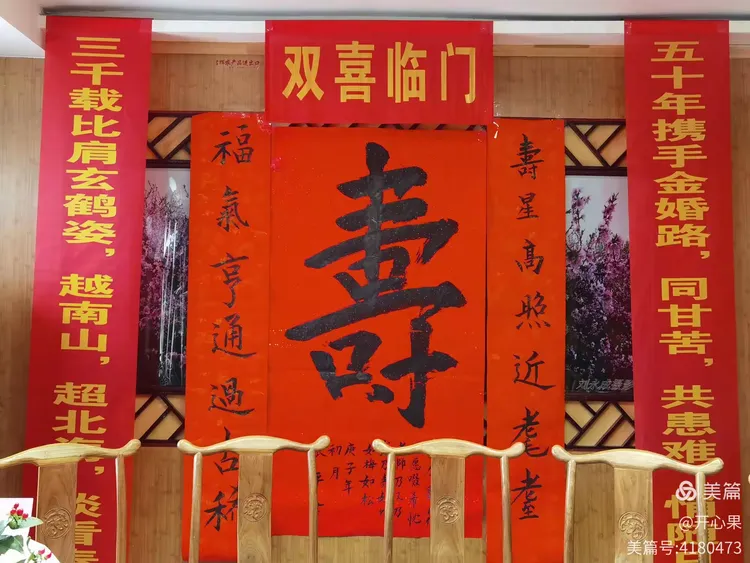 双喜临门
五十年携手金婚路，同甘苦，共患难
三千载比肩玄鹤姿，越南山，超北海，淡看
壽星高照近耄耋
壽
福氣亨通過古稀
如梅如松
庚子年
初月
刘永成摄影
美篇
@开心果
美篇号:4180473